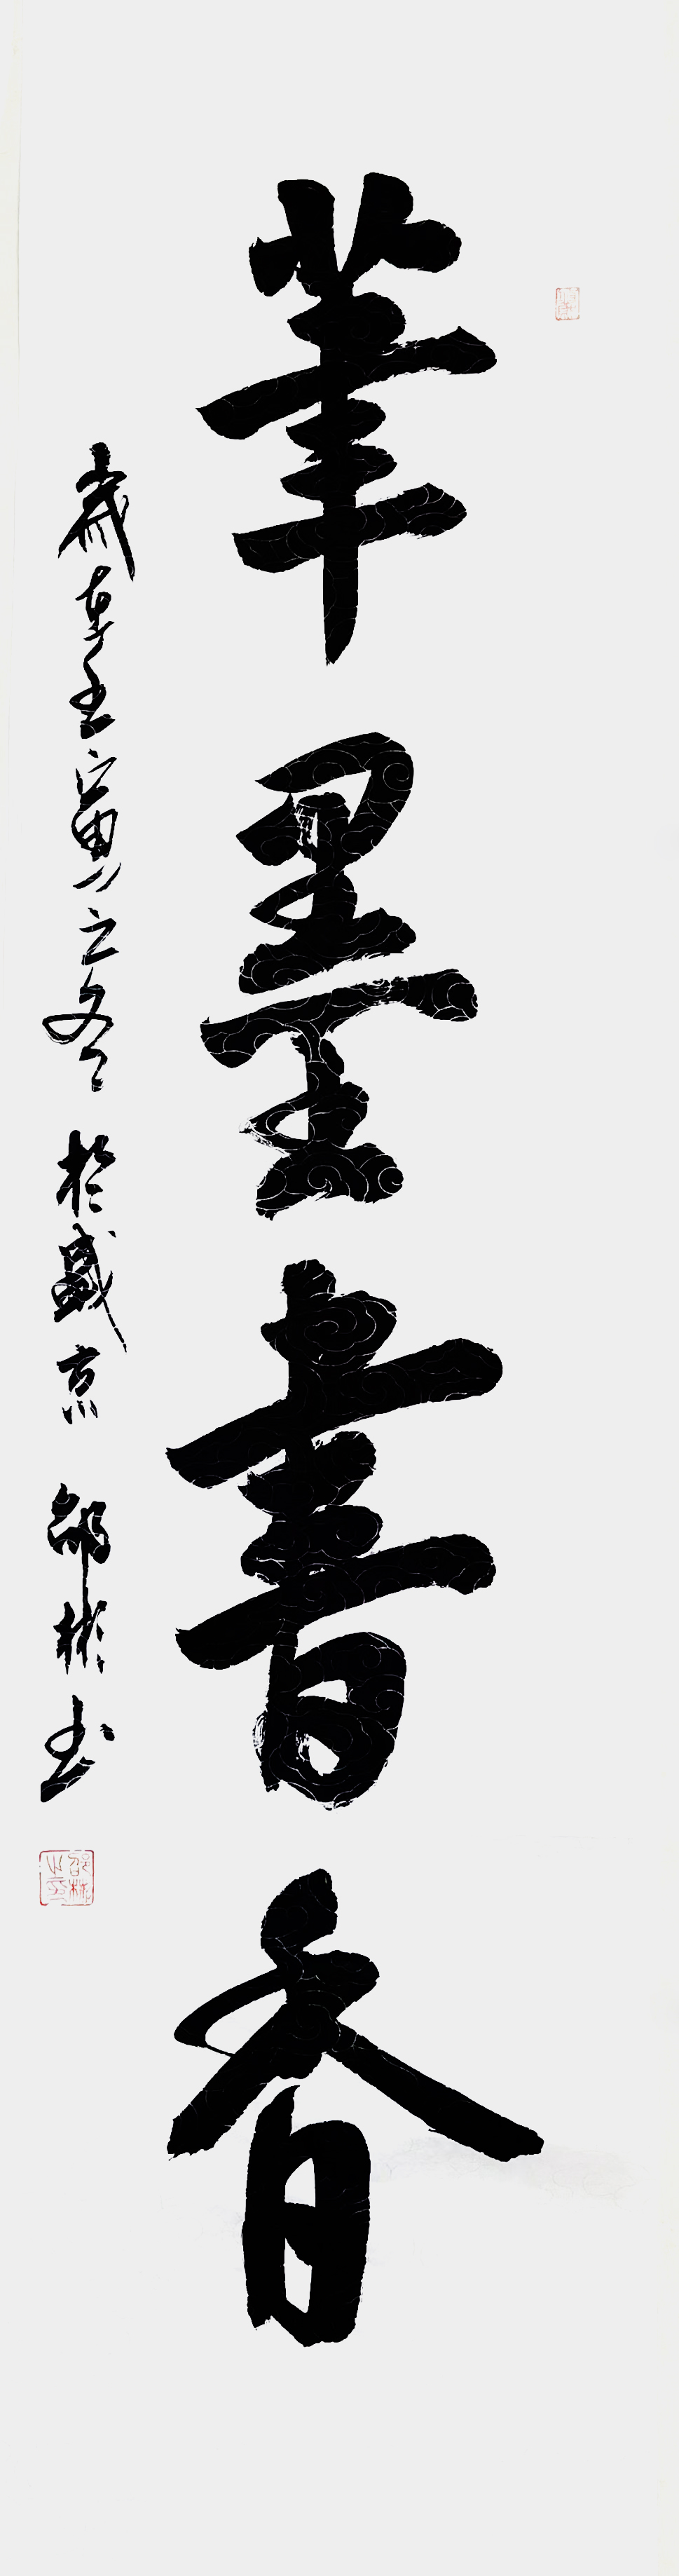 筆墨書香
歲在壬寅之冬於盛京邵彬書